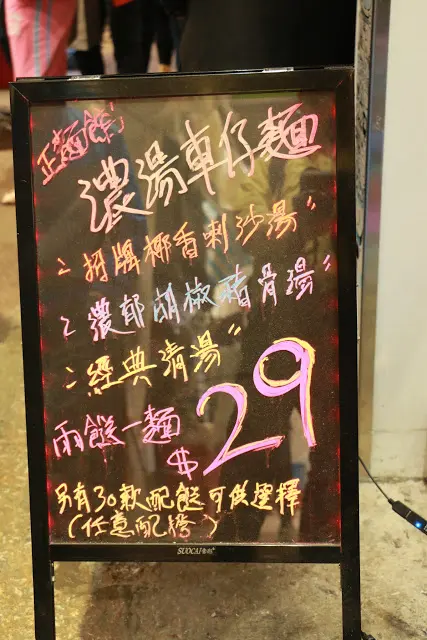 正麵餸
濃湯車仔麵
招牌椰香喇沙湯"
濃郁胡椒豬骨湯"
經典清湯"
兩餸一麵
$29
另有30款配餸可供選擇
(任意配搭)
SUOCAI